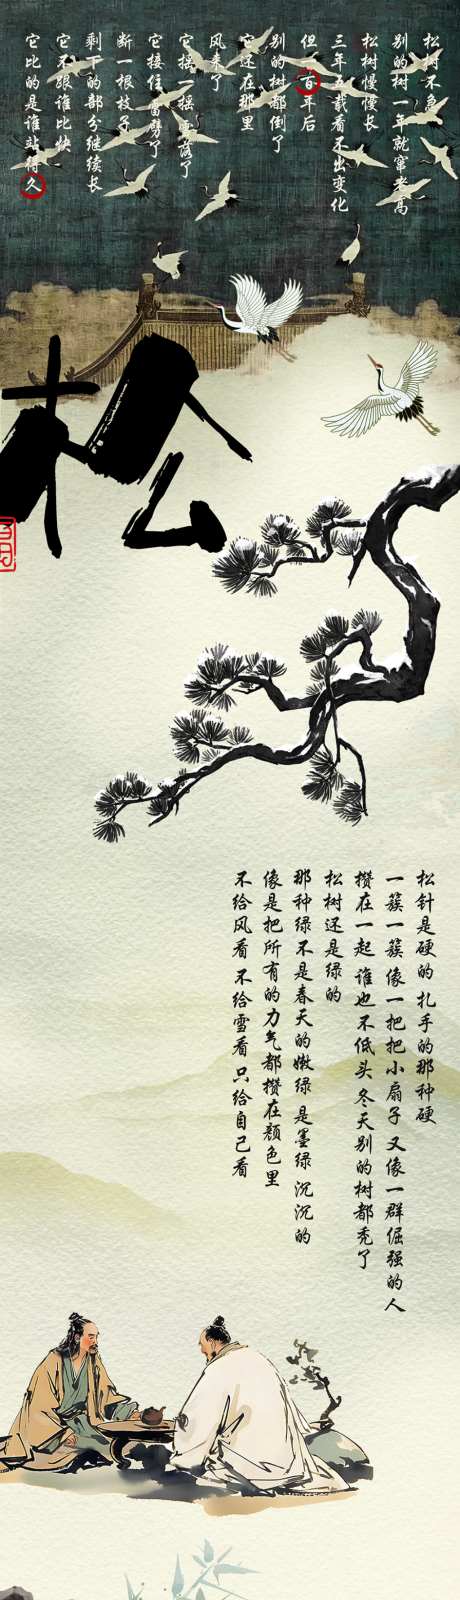 松树不急
别的树一年就窜老高
松树慢慢长
三年五载看不出变化
但一百年后
别的树都倒了
它还在那里
风来了
它摇一摇 雪落了
它接住 雷劈了
断一根枝子
剩下的部分继续长
它不跟谁比快
它比的是谁站得久
松
松针是硬的 扎手的那种硬
一簇一簇 像一把把小扇子 又像一群倔强的人
攒在一起 谁也不低头 冬天别的树都秃了
松树还是绿的
那种绿 不是春天的嫩绿 是墨绿 沉沉的
像是把所有的力气都攒在颜色里
不给风看 不给雪看 只给自己看